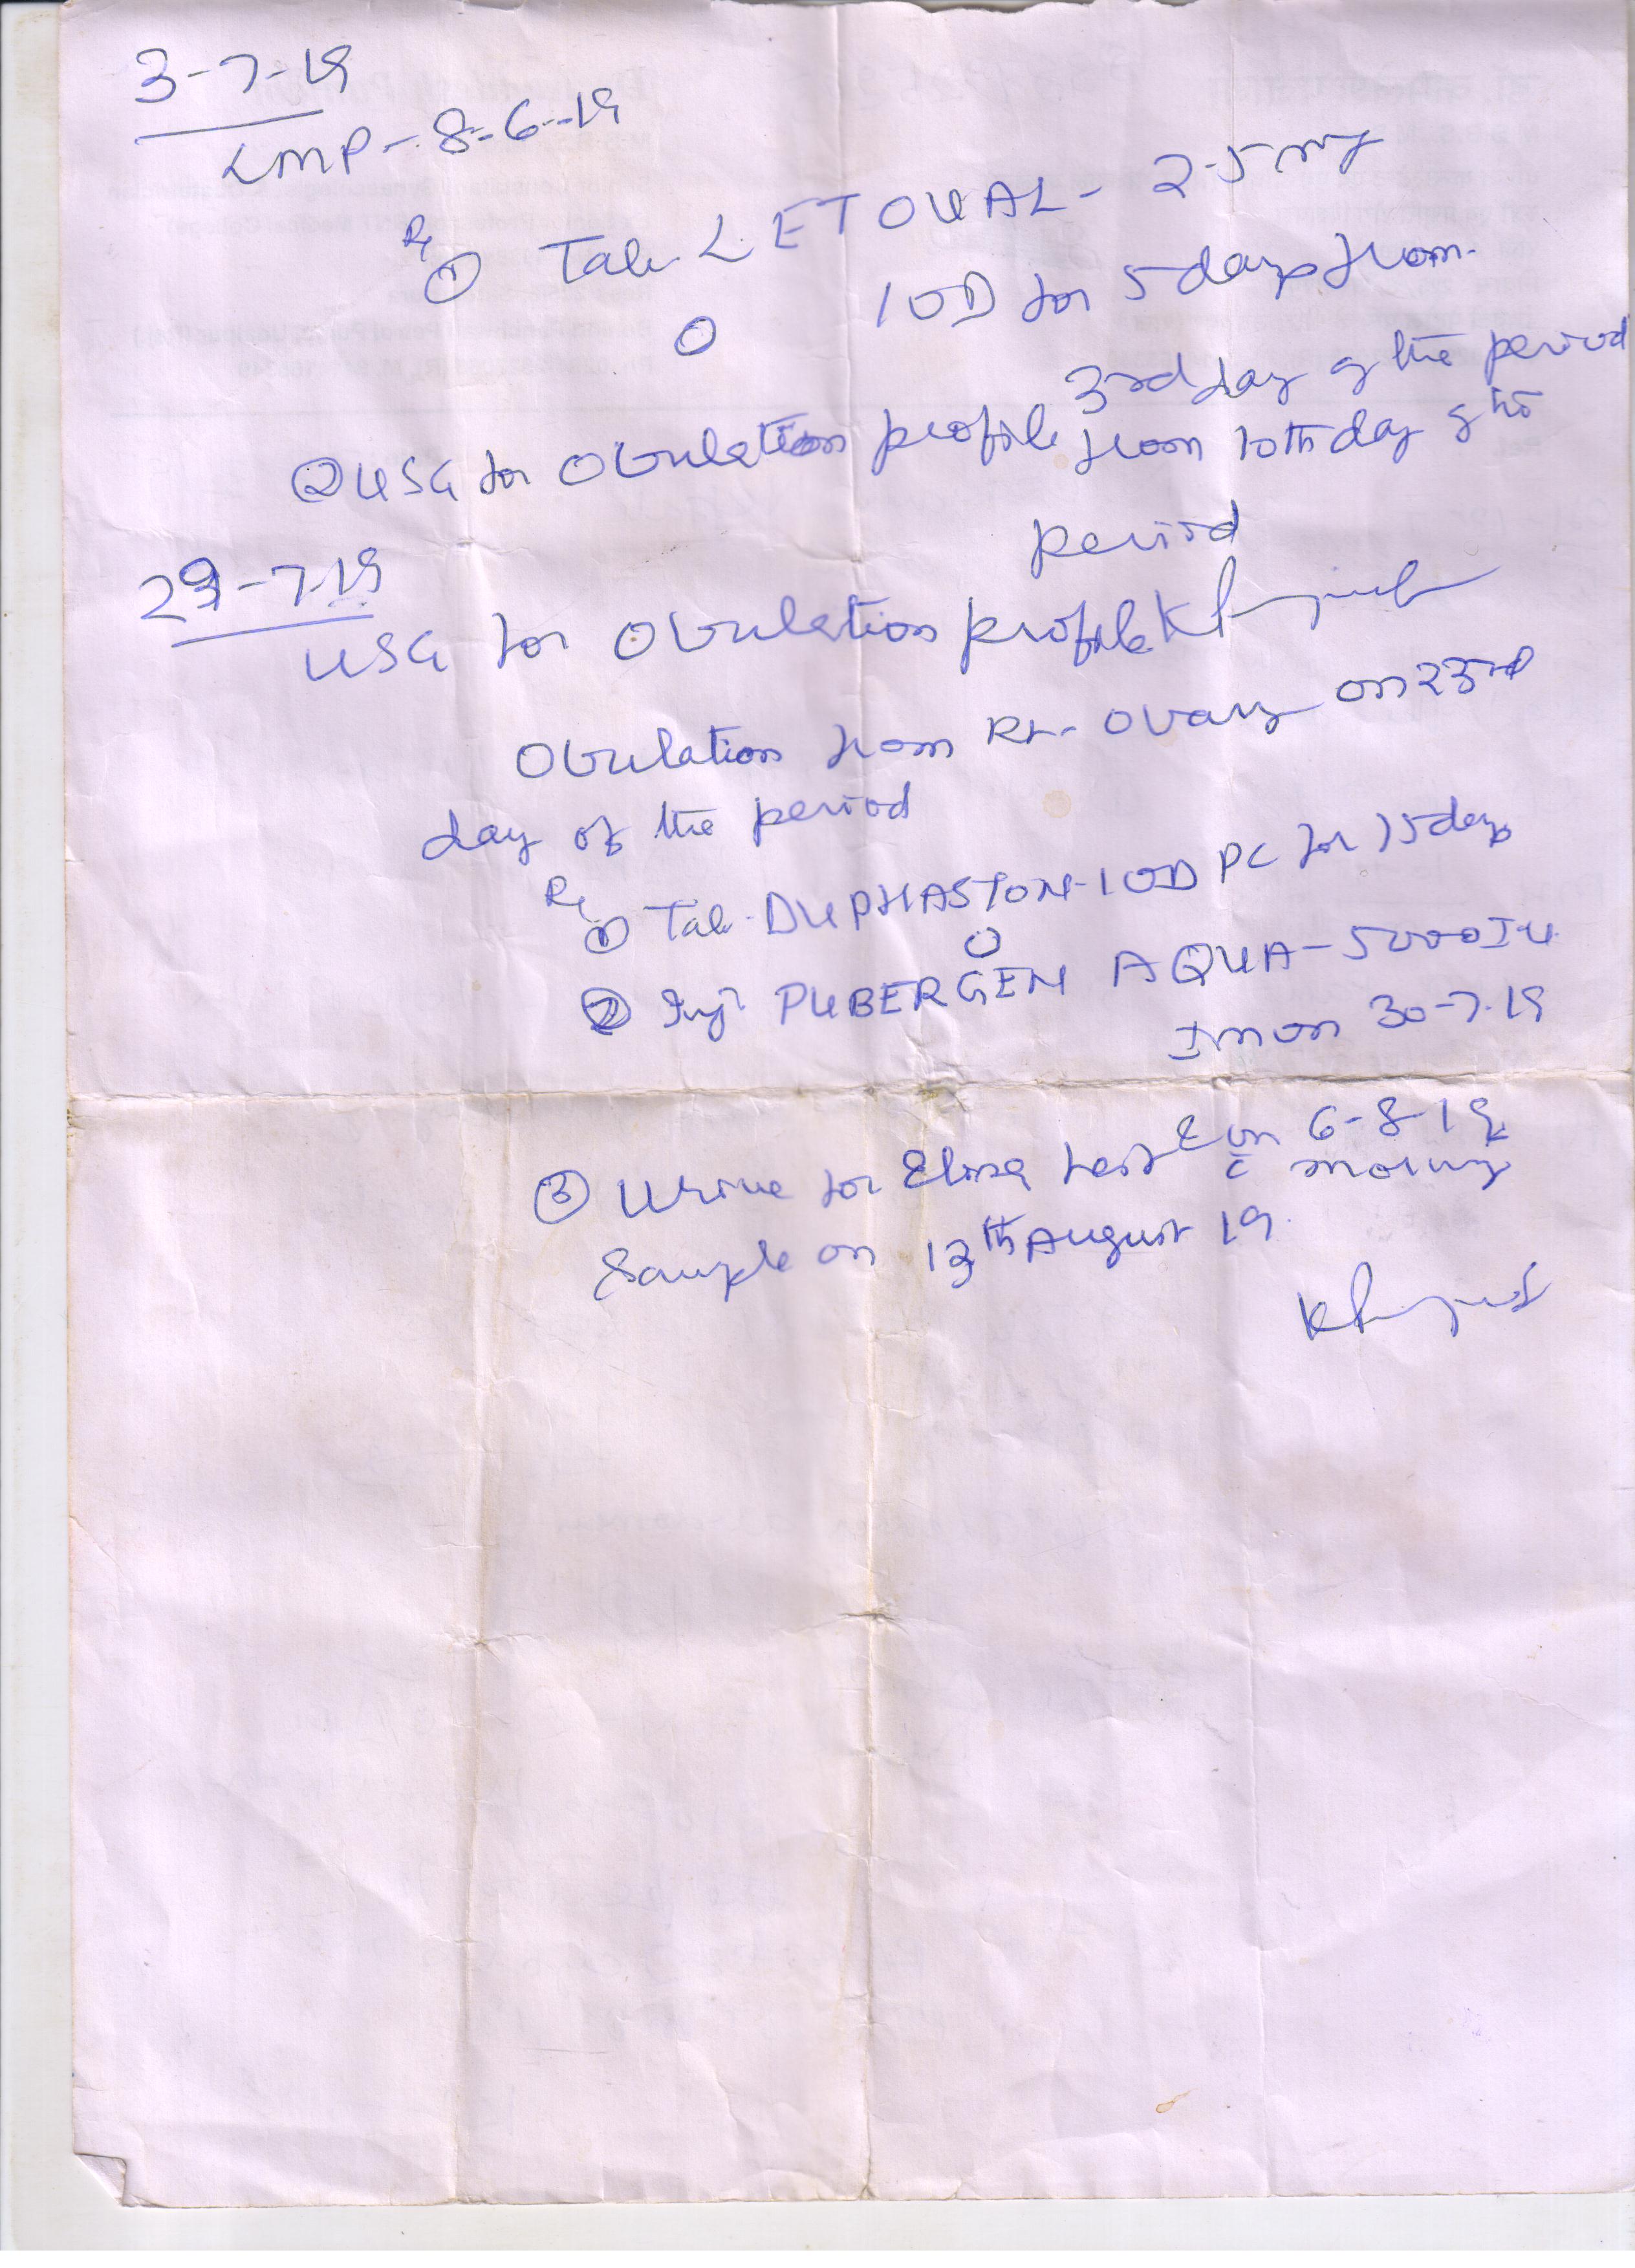 3-7-19
LMP- 8-6-19
Rx
① Tab. LETOVAL- 2.5 mg
1 OD for 5 days from
3rd day of the period
② USG for Ovulation profile from 10th day of the
period
29-7-19
USG for Ovulation profile
Ovulation from Rt- Ovary on 23rd
day of the period
Rx
① Tab. DUPHASTON- 1 OD PC for 15 days
② Inj. PUBERGEN AQUA- 5000 IU
IM on 30-7-19
& on 6-8-19
③ Urine for Elisa test c̄ morning
Sample on 13th August 19